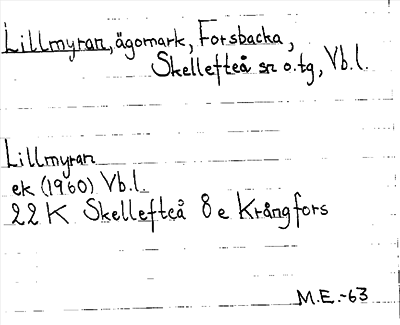 Lillmyran, ägomark, Forsbacka,
Skellefteå sn o. tg, Vb. l.
Lillmyran
ek (1960) Vb. l.
22 K Skellefteå 8 e Krångfors
M.E.-63